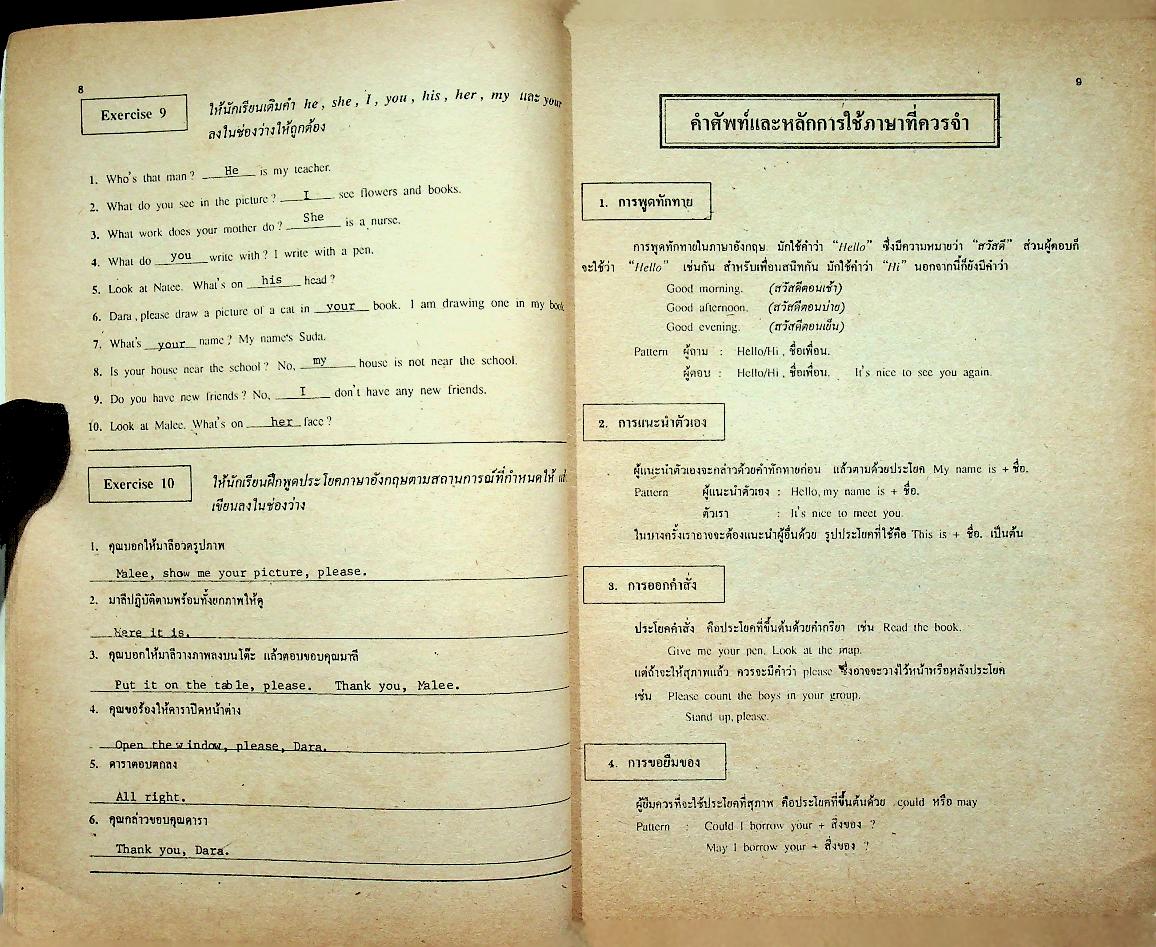 8
Exercise 9
ให้นักเรียนเติมคำ he, she, I, you, his, her, my และ your
ลงในช่องว่างให้ถูกต้อง
1. Who's that man? He is my teacher.
2. What do you see in the picture? I see flowers and books.
3. What work does your mother do? She is a nurse.
4. What do you write with? I write with a pen.
5. Look at Natee. What's on his head?
6. Dara, please draw a picture of a cat in your book. I am drawing one in my book
7. What's your name? My name's Suda.
8. Is your house near the school? No, my house is not near the school.
9. Do you have new friends? No, I don't have any new friends.
10. Look at Malee. What's on her face?
Exercise 10
ให้นักเรียนฝึกพูดประโยคภาษาอังกฤษตามสถานการณ์ที่กำหนดให้
เขียนลงในช่องว่าง
1. คุณบอกให้มาลีอวดรูปภาพ
Malee, show me your picture, please.
2. มาลีปฏิบัติตามพร้อมทั้งยกภาพให้ดู
Here it is.
3. คุณบอกให้มาลีวางภาพลงบนโต๊ะ แล้วตอบขอบคุณมาลี
Put it on the table, please. Thank you, Malee.
4. คุณขอร้องให้ดาราเปิดหน้าต่าง
Open the window, please, Dara.
5. ดาราตอบตกลง
All right.
6. คุณกล่าวขอบคุณดารา
Thank you, Dara.
9
คำศัพท์และหลักการใช้ภาษาที่ควรจำ
1. การพูดทักทาย
การพูดทักทายในภาษาอังกฤษ มักใช้คำว่า "Hello" ซึ่งมีความหมายว่า "สวัสดี" ส่วนผู้ตอบก็
จะใช้ว่า "Hello" เช่นกัน สำหรับเพื่อนสนิทกัน มักใช้คำว่า "Hi" นอกจากนี้ก็ยังมีคำว่า
Good morning. (สวัสดีตอนเช้า)
Good afternoon. (สวัสดีตอนบ่าย)
Good evening. (สวัสดีตอนเย็น)
Pattern ผู้ถาม : Hello/Hi, ชื่อเพื่อน.
ผู้ตอบ : Hello/Hi, ชื่อเพื่อน. It's nice to see you again.
2. การแนะนำตัวเอง
ผู้แนะนำตัวเองจะกล่าวด้วยคำทักทายก่อน แล้วตามด้วยประโยค My name is + ชื่อ.
Pattern ผู้แนะนำตัวเอง : Hello, my name is + ชื่อ.
ตัวเรา : It's nice to meet you.
ในบางครั้งเราอาจจะต้องแนะนำผู้อื่นด้วย รูปประโยคที่ใช้คือ This is + ชื่อ. เป็นต้น
3. การออกคำสั่ง
ประโยคคำสั่ง คือประโยคที่ขึ้นต้นด้วยคำกริยา เช่น Read the book.
Give me your pen. Look at the map.
แต่ถ้าจะให้สุภาพแล้ว ควรจะมีคำว่า please ซึ่งอาจจะวางไว้หน้าหรือหลังประโยค
เช่น Please count the boys in your group.
Stand up, please.
4. การขอยืมของ
ผู้ยืมควรที่จะใช้ประโยคที่สุภาพ คือประโยคที่ขึ้นต้นด้วย could หรือ may
Pattern : Could I borrow your + สิ่งของ ?
May I borrow your + สิ่งของ ?